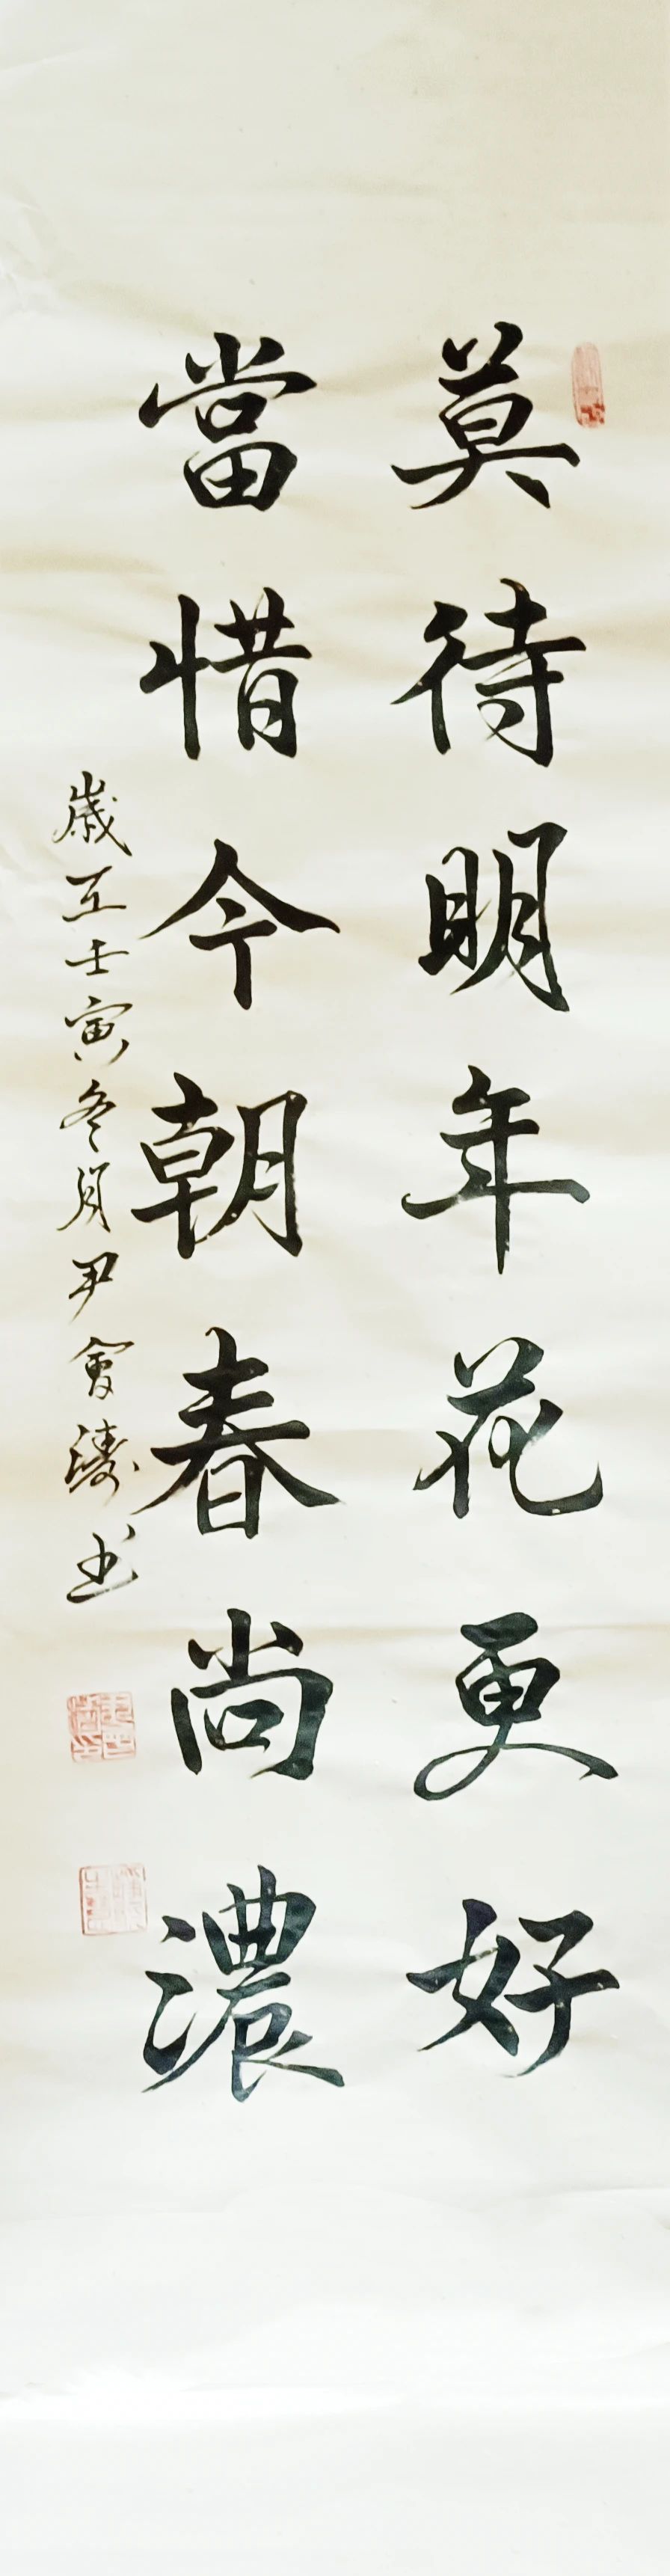 莫待明年花更好
當惜今朝春尚濃
歲在壬寅冬月尹會濤书